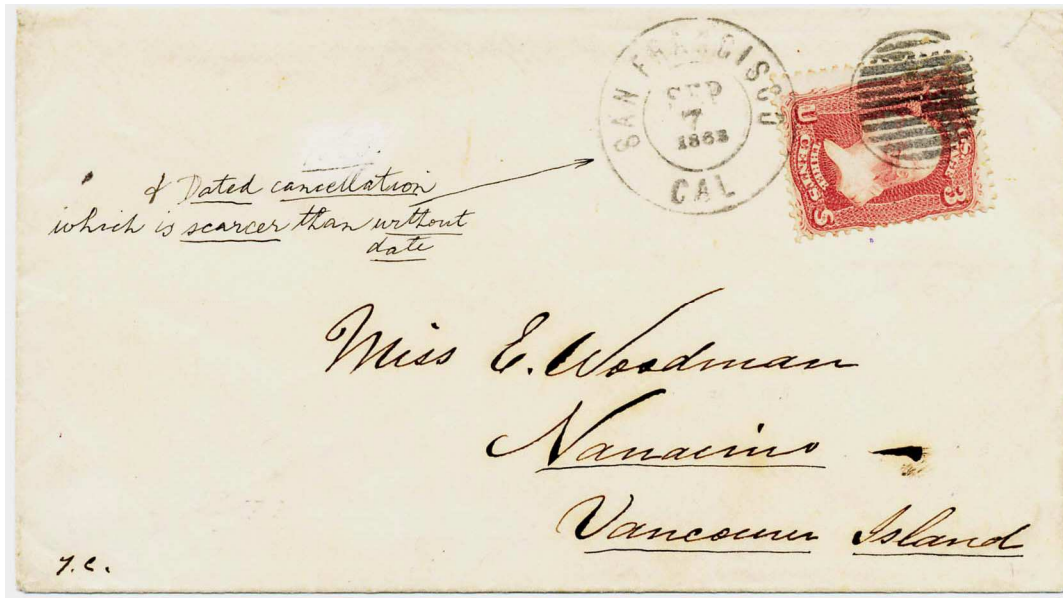 SAN FRANCISCO
SEP
7
1863
CAL
U S
THREE CENTS
3
& Dated cancellation
which is scarcer than without
date
Miss E. Woodman
Nanaimo
Vancouver Island
T.C.